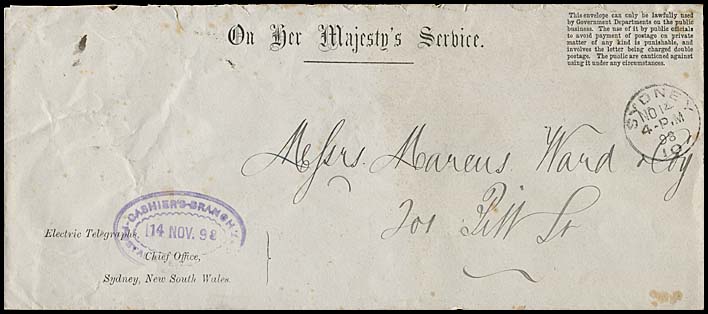 On Her Majesty's Service.
This envelope can only be lawfully used
by Government Departments on the public
business. The use of it by public officials
to avoid payment of postage on private
matter of any kind is punishable, and
involves the letter being charged double
postage. The public are cautioned against
using it under any circumstances.
SYDNEY
NO 14
4-P.M
98
10
Messrs. Marcus Ward & Coy
201 Pitt St
CASHIER'S-BRANCH
14 NOV. 98
Electric Telegraphs,
Chief Office,
Sydney, New South Wales.